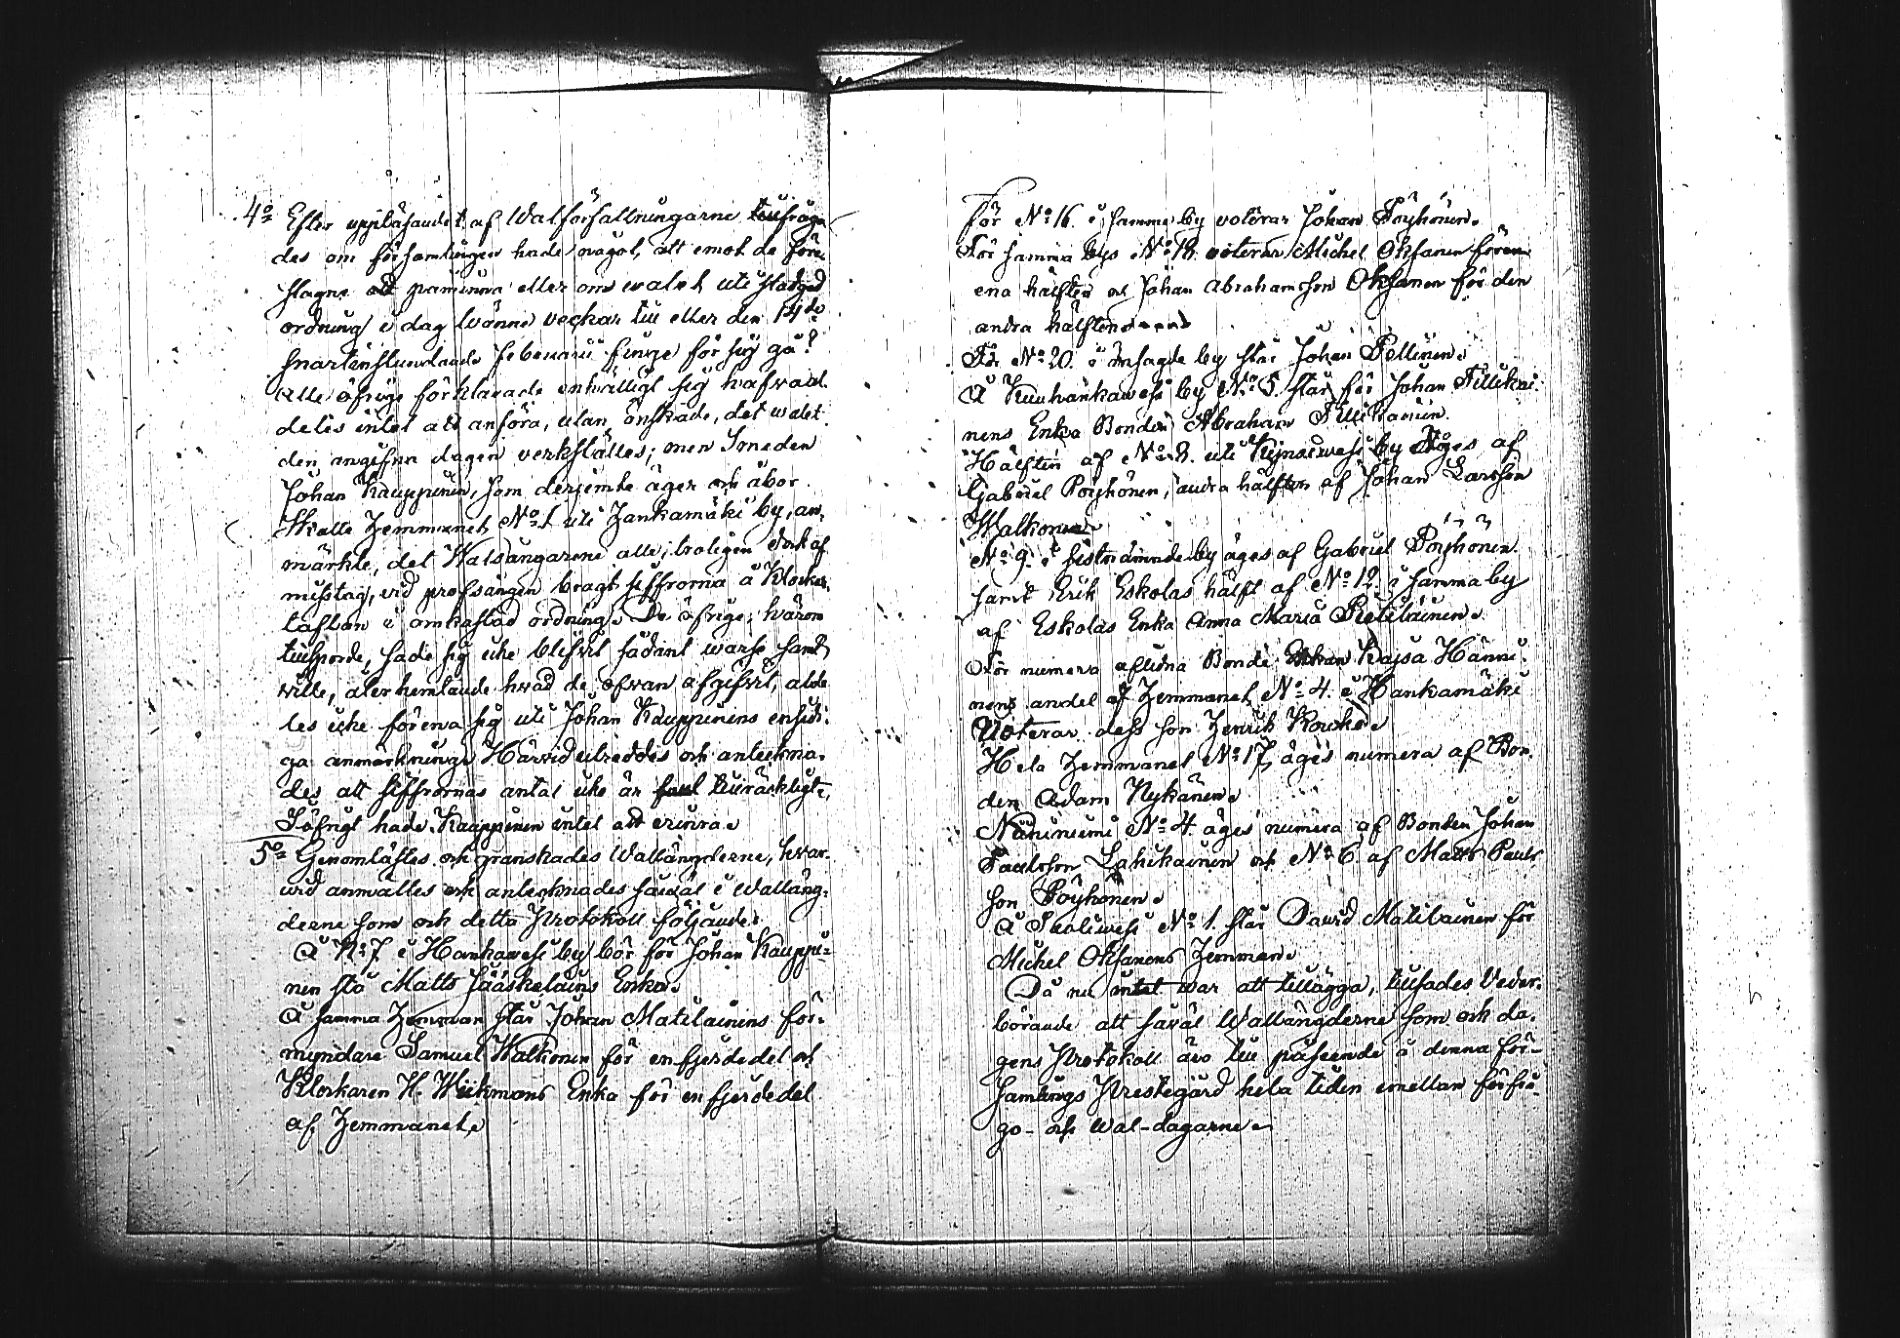 4:o Efter uppläsandet af Walförfattningarne tillfråga
des om församlingen hade något, att emot de före
slagne att påminna eller om walet uti stadgad
ordning i dag twänne veckor till eller den 14de
snartinstundande Februarii finge för sig gå?
Alle öfrige förklarade enhälligt sig hafva al
deles intet att anföra, utan önskade, det walet
den angifna dagen verkställes; men Smeden
Johan Kauppinen, som derjemte äger och åbor
Skatte Hemmanet No 1 uti Jankamäki by, an-
märkte, det Walsångarene alle, troligen dock af
misstag, vid profsången tragt siffrorna å Klockar
taflan i omkastad ordning. De öfrige, härom
tillsporde, sade sig icke blifvit sådant warse samt
wille, återhemtande hvad de ofvan afgifvit, alde
les icke förena sig uti Johan Kauppinens ensidi-
ga anmärkning. Härvid utreddes och antekna-
des att siffrornas antal icke är tillräckligt.
I öfrigt hade Kauppinen intet att erinra.
5:o Genomlästes och granskades Wallängderne, hvar-
wid anmältes och anteknades såwäl i Walläng-
derne som och detta Protokoll följande:
Å No 7 i Hankawesi by bör för Johan Kauppi-
nen stå Matts Jääskeläins Enka.
Å samma Hemman står Johan Matilainens för-
myndare Samuel Walkonen för en fjerdedel och
Klockaren H. Wickmans Enka för en fjerdedel
af Hemmanet.
För No 16. i samma by voterar Johan Pöyhönen.
För samma bys No 18. voterar Michel Oksanen för
ena hälften och Johan Abrahamsson Oksanen för den
andra hälften
För No 20. i nysagde by står Johan Pellinen.
Å Kuuhankawesi by No 5. står för Johan Tillikai
nens Enka Bonden Abraham Tillikainen.
Hälften af No 8. uti Kynsiwesi by äges af
Gabriel Pöyhönen, andra hälften af Johan Larsson
Walkonen
No 9. i sistnämnde by äges af Gabriel Pöyhönen
samt Erik Eskolas hälft af No 12. i samma by
af Eskolas Enka Anna Maria Pietiläinen.
För numera aflidna Bonde Enkan Kajsa Hänni-
nens andel af Hemmanet No 4. i Hankamäki
Voterar dess son Henrik Roucho.
Hela Hemmanet No 17, äges numera af Bon-
den Adam Nykänen.
Niininiemi No 4. äges numera af Bonden Johan
Paulsson Lahikainen och No 6 af Matts Pauls
son Pöyhönen.
Å No 1. står David Matilainen för
Michel Oksanens Hemman.
Då nu intet war att tillägga, tillsades Veder-
börande att såväl Wallängderne som och da-
gens Protokoll äro till påseende å denna för-
samlings Prestegård hela tiden emellan förfrå-
go- och Wal-dagarne.